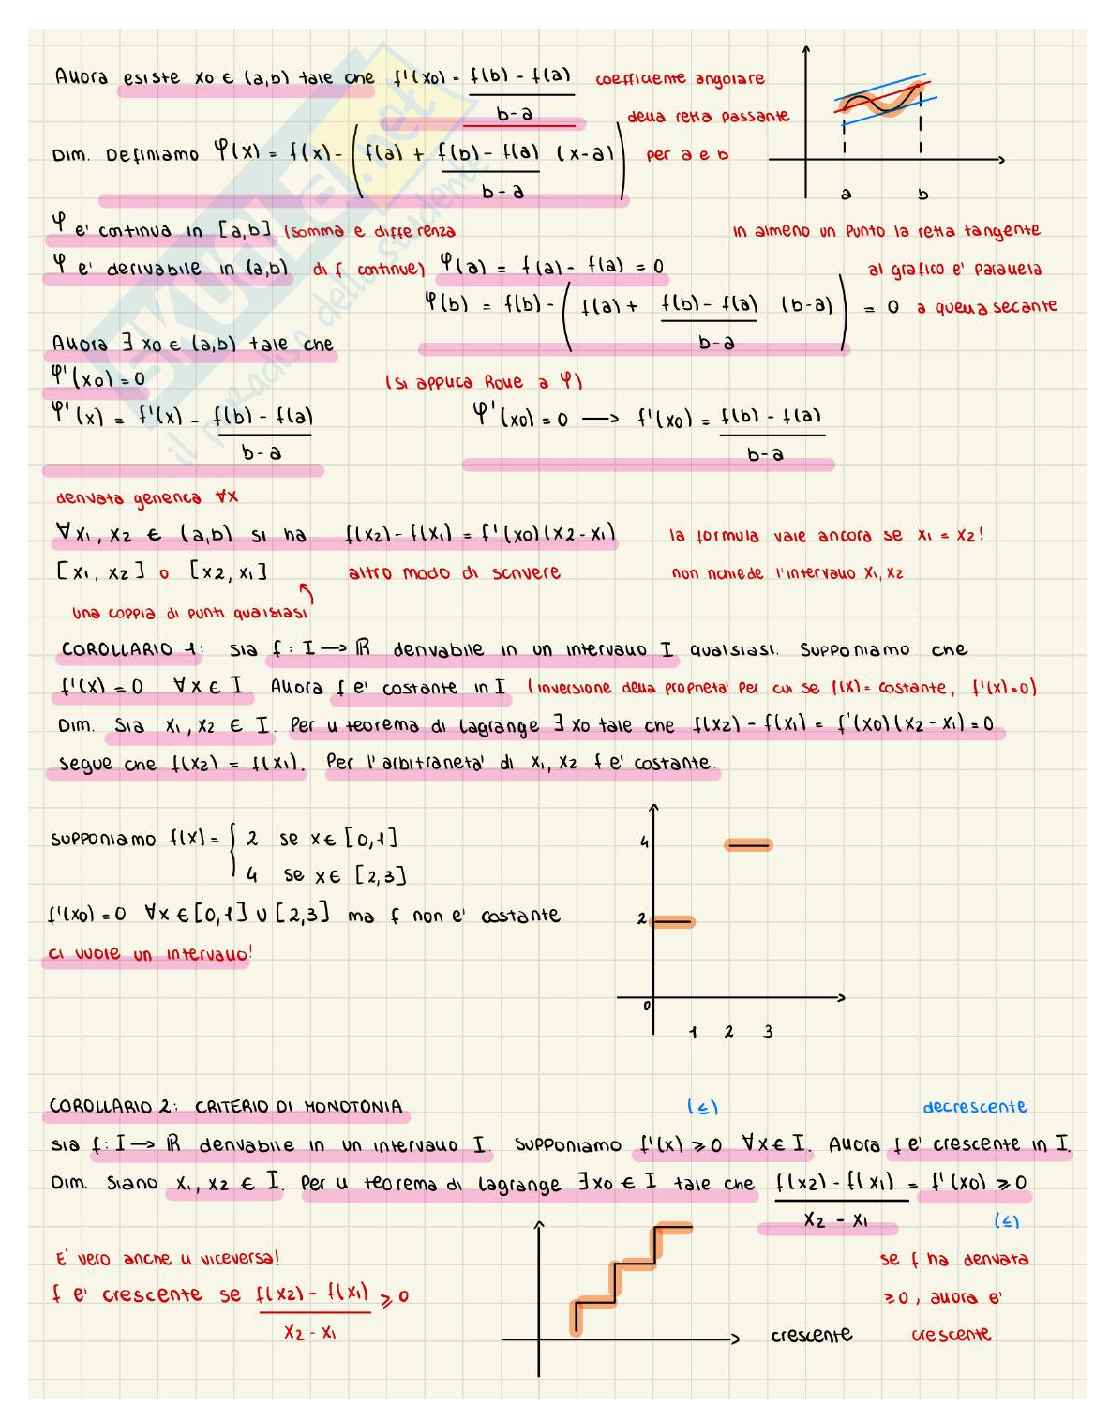 Allora esiste x0 ∈ (a,b) tale che f'(x0) = f(b) - f(a) / b-a coefficiente angolare
della retta passante
Dim. Definiamo φ(x) = f(x) - (f(a) + f(b) - f(a) / b-a (x-a)) per a e b
a b
φ e' continua in [a,b] (somma e differenza in almeno un punto la retta tangente
φ e' derivabile in (a,b) di f continue) φ(a) = f(a) - f(a) = 0 al grafico e' parallela
φ(b) = f(b) - (f(a) + f(b) - f(a) / b-a (b-a)) = 0 a quella secante
Allora ∃ x0 ∈ (a,b) tale che
φ'(x0) = 0 (si applica Rolle a φ)
φ'(x) = f'(x) - f(b) - f(a) / b-a φ'(x0) = 0 → f'(x0) = f(b) - f(a) / b-a
derivata generica ∀x
∀x1, x2 ∈ (a,b) si ha f(x2) - f(x1) = f'(x0)(x2-x1) la formula vale ancora se x1 = x2!
[x1, x2] o [x2, x1] altro modo di scrivere non richiede l'intervallo x1, x2
una coppia di punti qualsiasi
COROLLARIO 1: sia f: I → ℝ derivabile in un intervallo I qualsiasi. Supponiamo che
f'(x) = 0 ∀x ∈ I Allora f e' costante in I (inversione della proprieta' per cui se f(x) = costante, f'(x)=0)
Dim. Sia x1, x2 ∈ I. Per il teorema di lagrange ∃ x0 tale che f(x2) - f(x1) = f'(x0)(x2-x1) = 0
segue che f(x2) = f(x1). Per l'arbitrarieta' di x1, x2 f e' costante.
supponiamo f(x) = { 2 se x ∈ [0,1]
4 se x ∈ [2,3]
f'(x0) = 0 ∀x ∈ [0,1] ∪ [2,3] ma f non e' costante
ci vuole un intervallo!
4
2
0
1 2 3
COROLLARIO 2: CRITERIO DI MONOTONIA (≤) decrescente
sia f: I → ℝ derivabile in un intervallo I. Supponiamo f'(x) ≥ 0 ∀x ∈ I. Allora f e' crescente in I.
Dim. Siano x1, x2 ∈ I. Per il teorema di lagrange ∃x0 ∈ I tale che f(x2) - f(x1) / x2 - x1 = f'(x0) ≥ 0
(≤)
E' vero anche il viceversa! se f ha derivata
f e' crescente se f(x2) - f(x1) / x2 - x1 ≥ 0 ≥0, allora e'
crescente crescente
SKUOLA.net
il paradiso dello studente